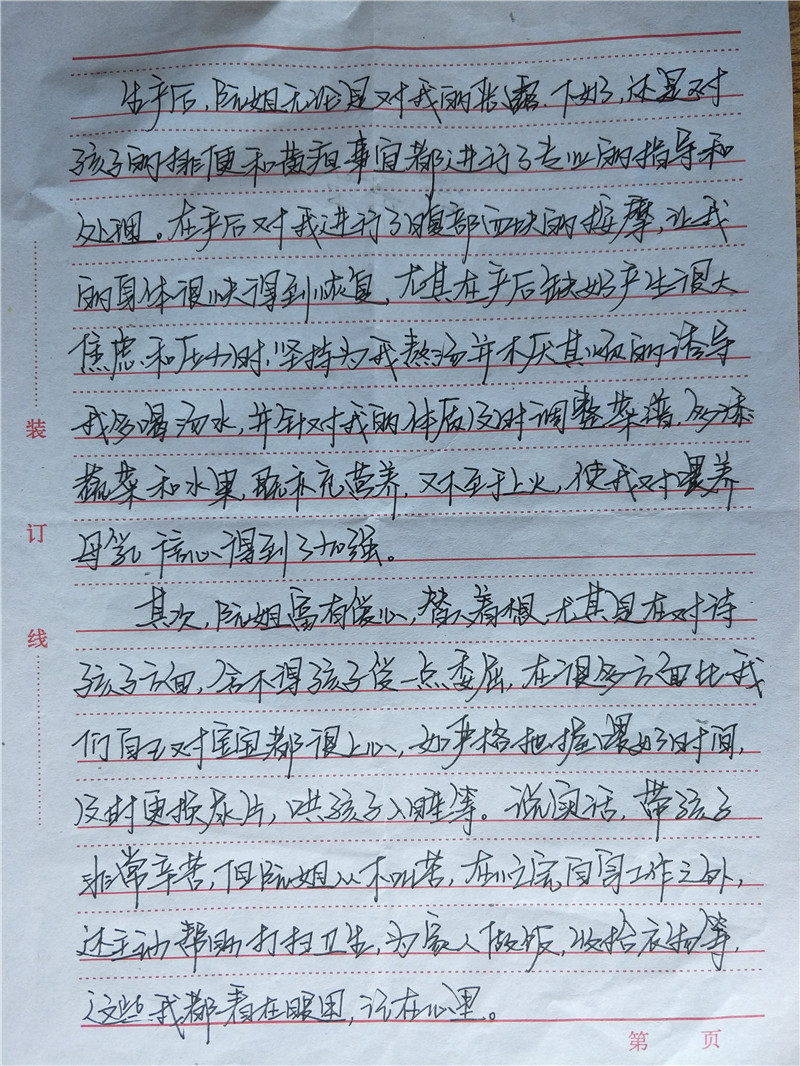 生产后，阮姐无论是对我的胀奶、下奶，还是对
孩子的排便和黄疸事宜都进行了专业的指导和
处理。在产后对我进行了腹部四块的按摩，让我
的身体很快得到恢复，尤其在产后缺奶产生很大
焦虑和压力时，坚持为我熬汤并不厌其烦的诱导
我多喝汤水，并针对我的体质及时调整菜谱，多添
蔬菜和水果，既补充营养，又不至于上火，使我对喂养
母乳信心得到了加强。
其次，阮姐富有爱心，替人着想，尤其是在对待
孩子方面，舍不得孩子受一点委屈，在很多方面比我
们自己对宝宝都很上心，如严格把握喂奶时间，
及时更换尿片，哄孩子入睡等。说实话，带孩子
非常辛苦，但阮姐从不叫苦，在做完自己工作之外，
还主动帮助打扫卫生，为家人做饭，收拾衣物等，
这些我都看在眼里，记在心里。
装
订
线
第 页